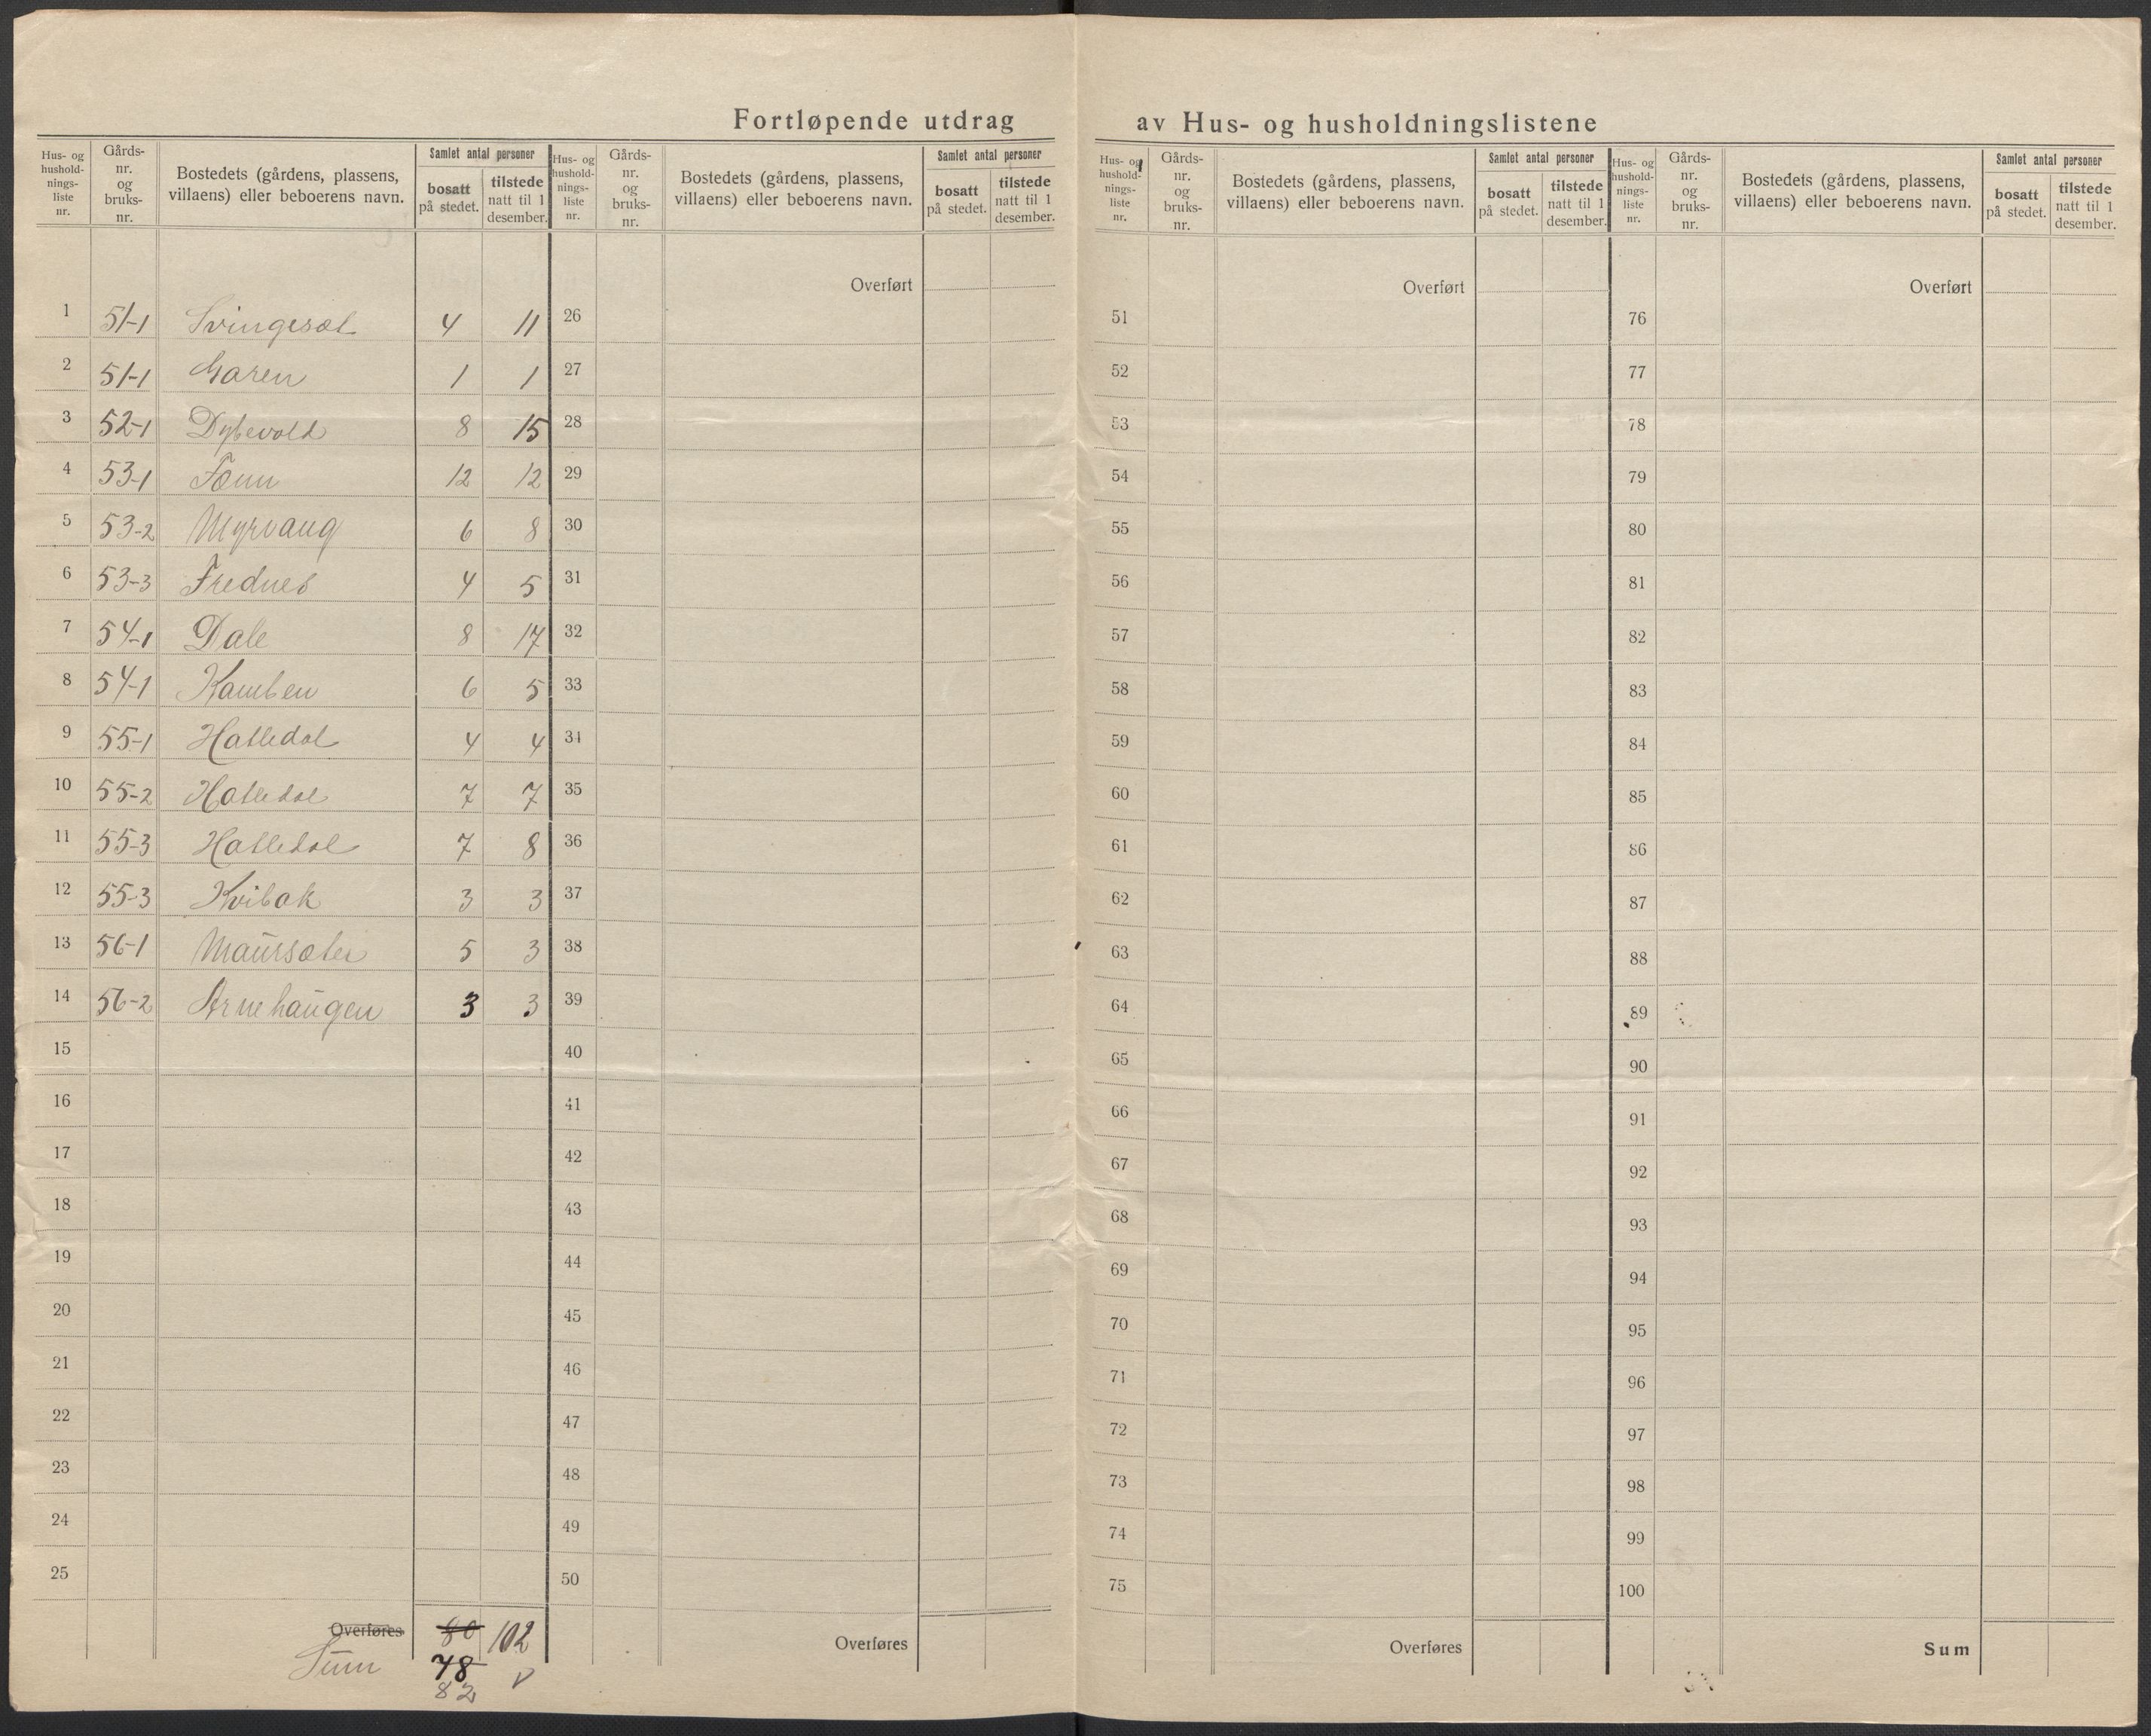 Fortløpende utdrag av Hus- og husholdningslistene
Hus- og hushold-nings-liste nr. | Gårds-nr. og bruks-nr. | Bostedets (gårdens, plassens, villaens) eller beboerens navn. | Samlet antal personer | bosatt på stedet. | tilstede natt til 1 desember.
1 51-1 Svingesæt 4 11
2 51-1 Garen 1 1
3 52-1 Dybevold 8 15
4 53-1 Fænn 12 12
5 53-2 Myrvang 6 8
6 53-3 Frednes 4 5
7 54-1 Dale 8 17
8 54-1 Kamben 6 5
9 55-1 Halledal 4 4
10 55-2 Halledal 7 7
11 55-3 Halledal 7 8
12 55-3 Kvibak 3 3
13 56-1 Maursæter 5 3
14 56-2 Arnehaugen 3 3
15
16
17
18
19
20
21
22
23
24
25
Overføres 80 102
Sum 78
82 V
Hus- og hushold-nings-liste nr. | Gårds-nr. og bruks-nr. | Bostedets (gårdens, plassens, villaens) eller beboerens navn. | Samlet antal personer | bosatt på stedet. | tilstede natt til 1 desember.
Overført
26
27
28
29
30
31
32
33
34
35
36
37
38
39
40
41
42
43
44
45
46
47
48
49
50
Overføres
Hus- og hushold-nings-liste nr. | Gårds-nr. og bruks-nr. | Bostedets (gårdens, plassens, villaens) eller beboerens navn. | Samlet antal personer | bosatt på stedet. | tilstede natt til 1 desember.
Overført
51
52
53
54
55
56
57
58
59
60
61
62
63
64
65
66
67
68
69
70
71
72
73
74
75
Overføres
Hus- og hushold-nings-liste nr. | Gårds-nr. og bruks-nr. | Bostedets (gårdens, plassens, villaens) eller beboerens navn. | Samlet antal personer | bosatt på stedet. | tilstede natt til 1 desember.
Overført
76
77
78
79
80
81
82
83
84
85
86
87
88
89
90
91
92
93
94
95
96
97
98
99
100
Sum